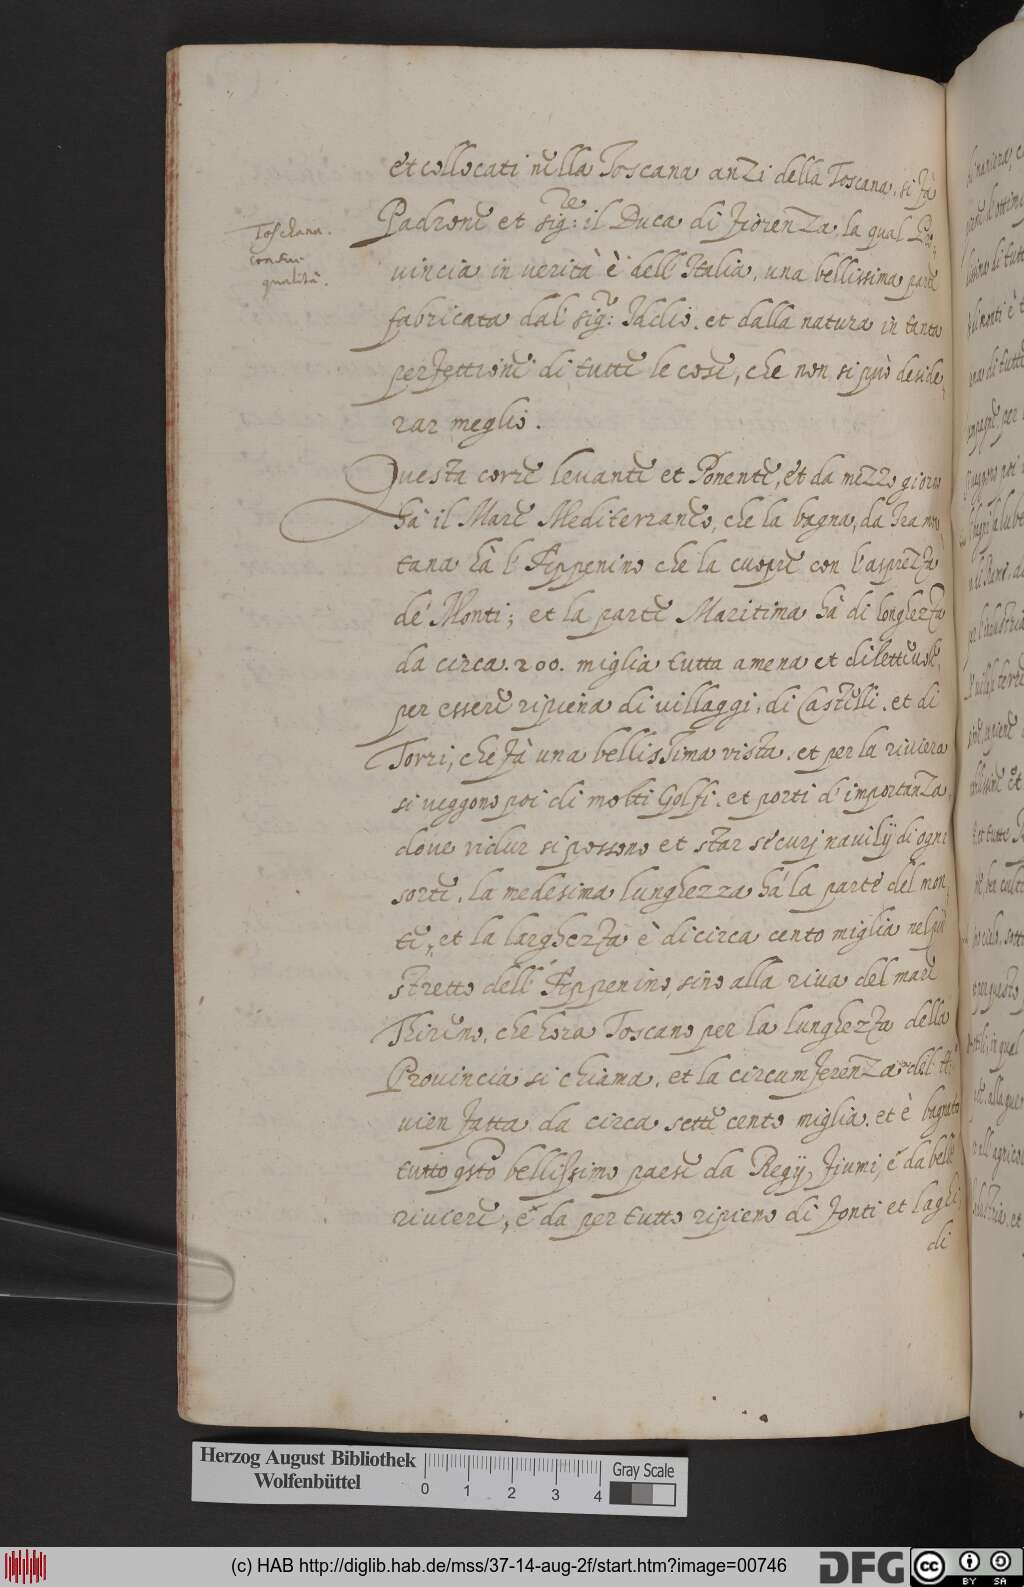 et collocati nella Toscana anzi della Toscana, si fà
Padrone et sig:re il Duca di Fiorenza, la qual Pro-
Toschana.
con sue
qualità.
uincia in uerità è dell'Italia, una bellissima parte
fabricata dal sig:r Iddio, et dalla natura in tanta
perfettione di tutte le cose, che non si può deside-
rar meglio.
Questa corre leuante et Ponente, et da mezzo giorno
hà il Mare Mediterraneo, che la bagna, da Tramon-
tana hà l'Appenino che la cuopre con l'asprezza
de' Monti; et la parte Maritima hà di longhezza
da circa 200. miglia tutta amena et diletteuole,
per essere ripiena di uillaggi, di Castelli, et di
Torri, che fà una bellissima vista, et per la riuiera
si ueggono poi di molti Golfi, et porti d'importanza,
doue ridur si possono et star securj nauilÿ di ogni
sorte, la medesima lunghezza hà la parte del mon-
te, et la larghezza è di circa cento miglia nel più
stretto dell'Appenino, sino alla riua del mare
Thireno, che hora Toscano per la lunghezza della
Prouincia si chiama, et la circumferenza del
uien fatta da circa sette cento miglia, et è bagnato
tutto q̃sto bellissimo paese da Regÿ fiumi, é da belle
riuiere, é da per tutto ripieno di fonti et laghi,
di
Herzog August Bibliothek
Wolfenbüttel
0 1 2 3 4
Gray Scale
(c) HAB http://diglib.hab.de/mss/37-14-aug-2f/start.htm?image=00746
DFG
CC BY SA